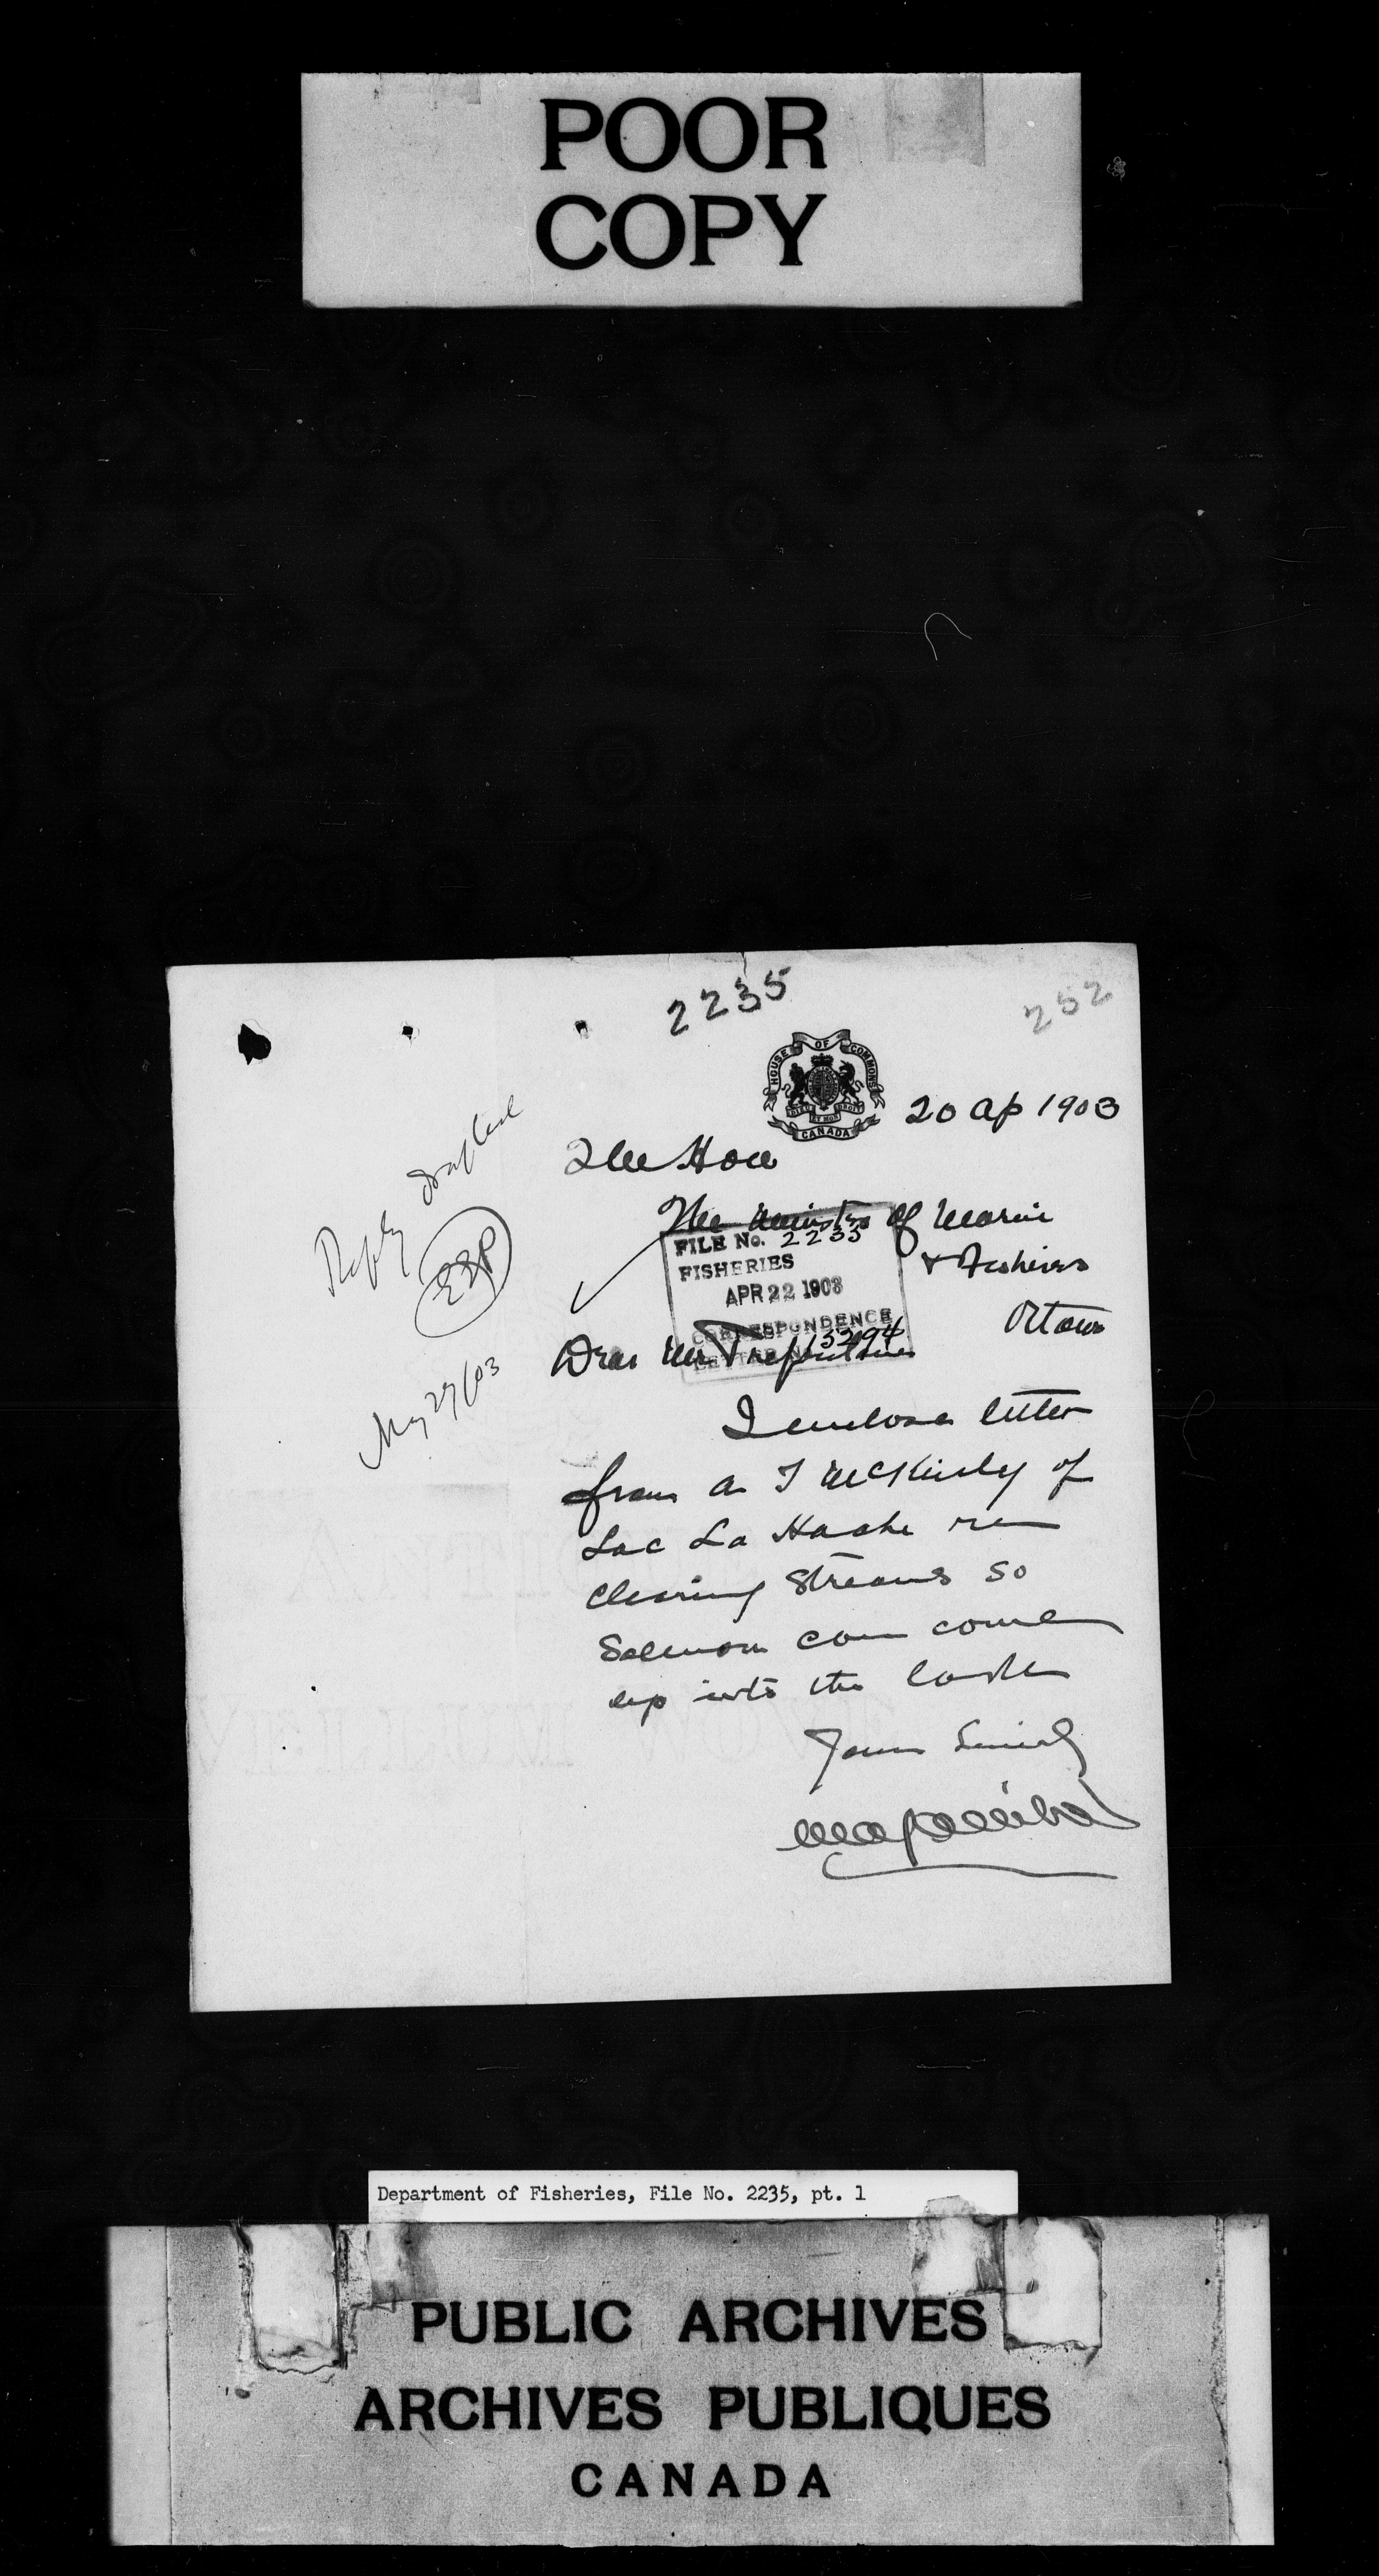 POOR
COPY
2235
252
HOUSE OF COMMONS
CANADA
20 Ap 1903
The Hon
The Minister of Marine
& Fisheries
Ottawa
FILE No. 2235
FISHERIES
APR 22 1903
CORRESPONDENCE
LETTER No. 3294
Reply drafted
EEP
May 27/03
Dear Mr Prefontaine
I enclose letter
from A I McKinley of
Lac La Hache re
Clearing Streams so
Salmon can come
up into the Lake
Yours Sincerely
Department of Fisheries, File No. 2235, pt. 1
PUBLIC ARCHIVES
ARCHIVES PUBLIQUES
CANADA